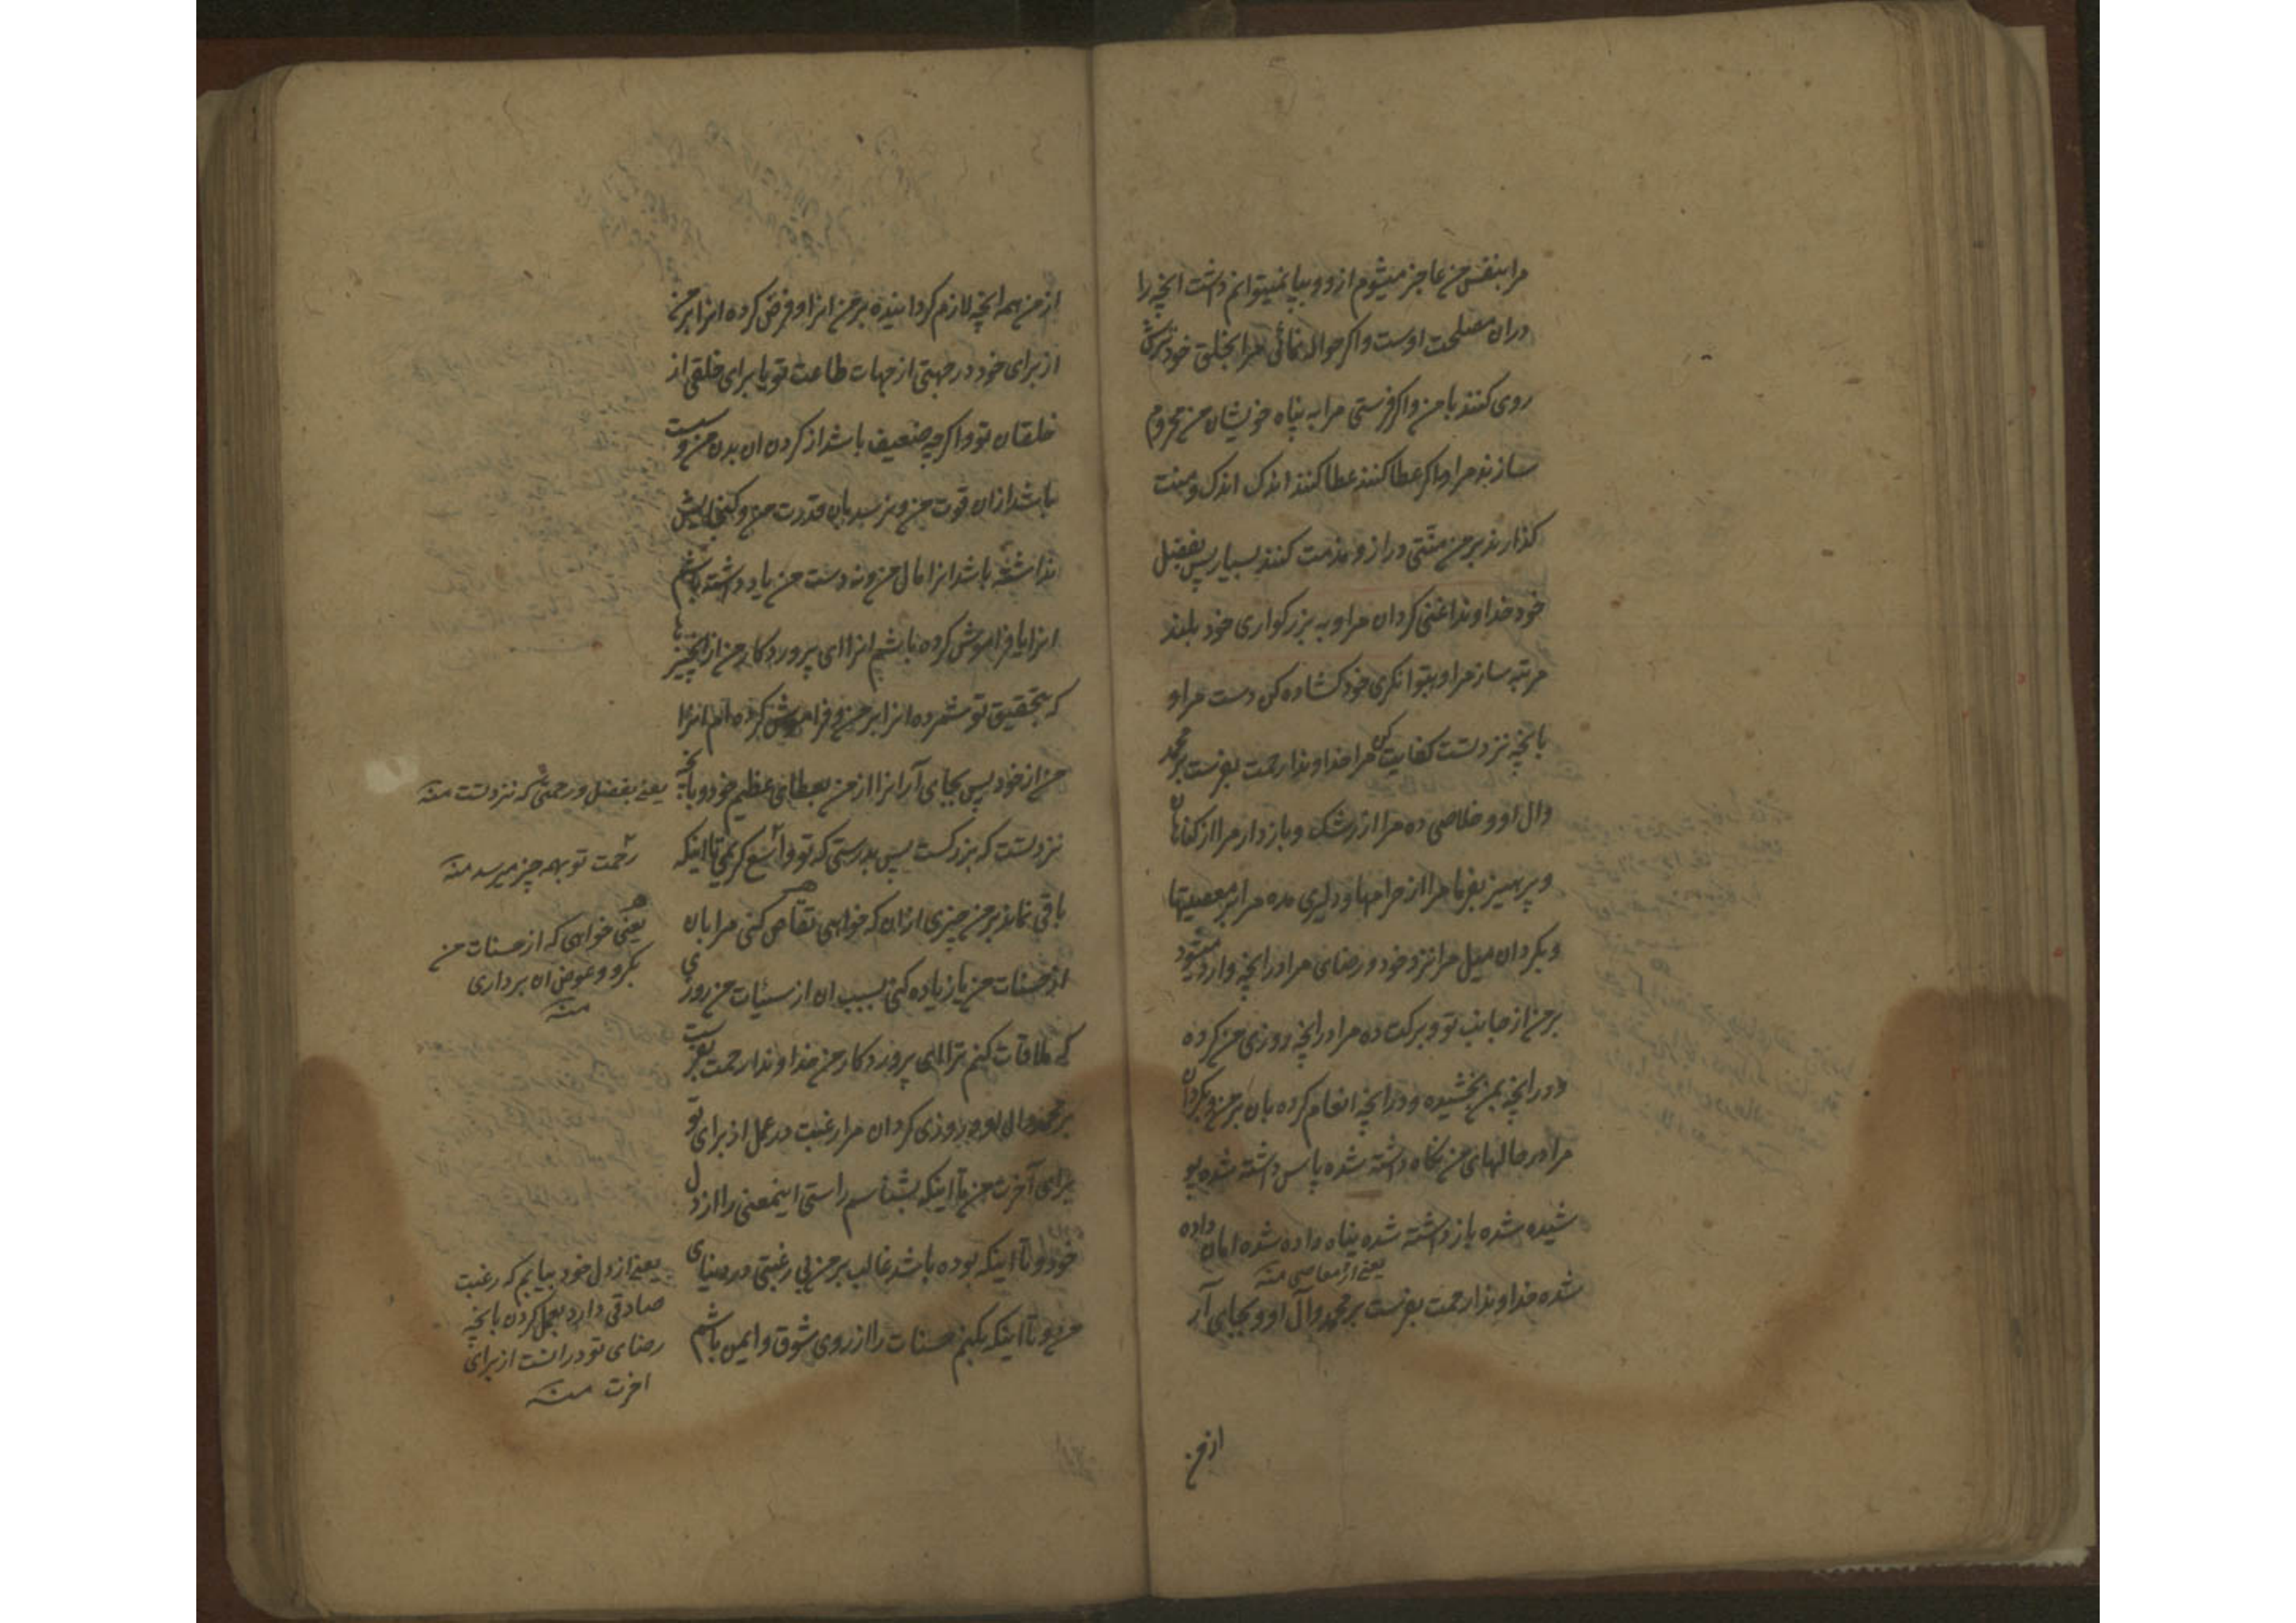 مرا بنفس من عاجز میشوم ازو و بپا نمیتوانم داشت انچه را
دران مصلحت اوست و اکر حواله نمائی مرا بخلق خود ترش
روی کنند با من و اکر فرستی مرا به پناه خویشان من محروم
سازند مرا و اکر عطا کنند عطا کنند اندک اندک و منت
کذارند بر من منتی دراز و مذمت کنند بسیار پس بفضل
خود خداوندا غنی کردان مرا و به بزرکواری خود بلند
مرتبه ساز مرا و بتوانکری خود کشاده کن دست مرا و
بانچه نزد تست کفایت کن مرا خداوندا رحمت بفرست بر محمد
وال او و خلاصی ده مرا از رشک و باز دار مرا از کناهان
و پرهیز بفرما مرا از حرامها و دلیری مده مرا بر معصیتها
و بکردان میل مرا نزد خود و رضای مرا در انچه وارد میشود
بر من از جانب تو و برکت ده مرا در انچه روزی من کرده
و در انچه بمن بخشیده و در انچه انعام کرده بان بر من و بکردان
مرا در حالهای من نکاه داشته شده پاس داشته شده پو
شیده شده باز داشته شده پناه داده شده امان داده
یعنی از معاصی منه
شده خداوندا رحمت بفرست بر محمد وآل او و بجای آر
از من
از من همه انچه لازم کردانیده بر من انرا و فرض کرده انرا بر من
از برای خود در جهتی از جهات طاعت تو یا برای خلقی از
خلقان تو و اکرچه ضعیف باشد از کردن ان بدن من و سست
باشد ازان قوت من و نرسد بان قدرت من و کنجایش
نداشته باشد انرا مال من و نه دست من یاد داشته باشم
انرا یا فراموش کرده باشم انرا ای پروردکار من از انچیزها
که بتحقیق تو شمرده انرا بر من و فراموش کرده ام انرا
من از خود پس بجای آر انرا از من بعطای عظیم خود و بانچه
نزد تست که بزرکست پس بدرستی که تو واسع کریمی تا اینکه
باقی نماند بر من چیزی ازان که خواهی تقاص کنی مرا بان
از حسنات من یا زیاده کنی بسبب ان از سیئات من روزی
که ملاقات کنم ترا ای پروردکار من خداوندا رحمت بفرست
بر محمد وال او و روزی کردان مرا رغبت در عمل از برای تو
برای آخرت من تا اینکه بشناسم راستی اینمعنی را از دل
خود و تا اینکه بوده باشد غالب بر من بی رغبتی در دنیای
من و تا اینکه بکنم حسنات را از روی شوق و ایمن باشم
یعنی بفضل و رحمتی که نزد تست منه
رحمت تو بهمه چیز میرسد منه
یعنی خواهی که از حسنات من
بکیری و عوض ان برداری
منه
یعنی از دل خود بیابم که رغبت
صادقی دارد بعمل کردن بانچه
رضای تو در انست از برای
اخرت منه